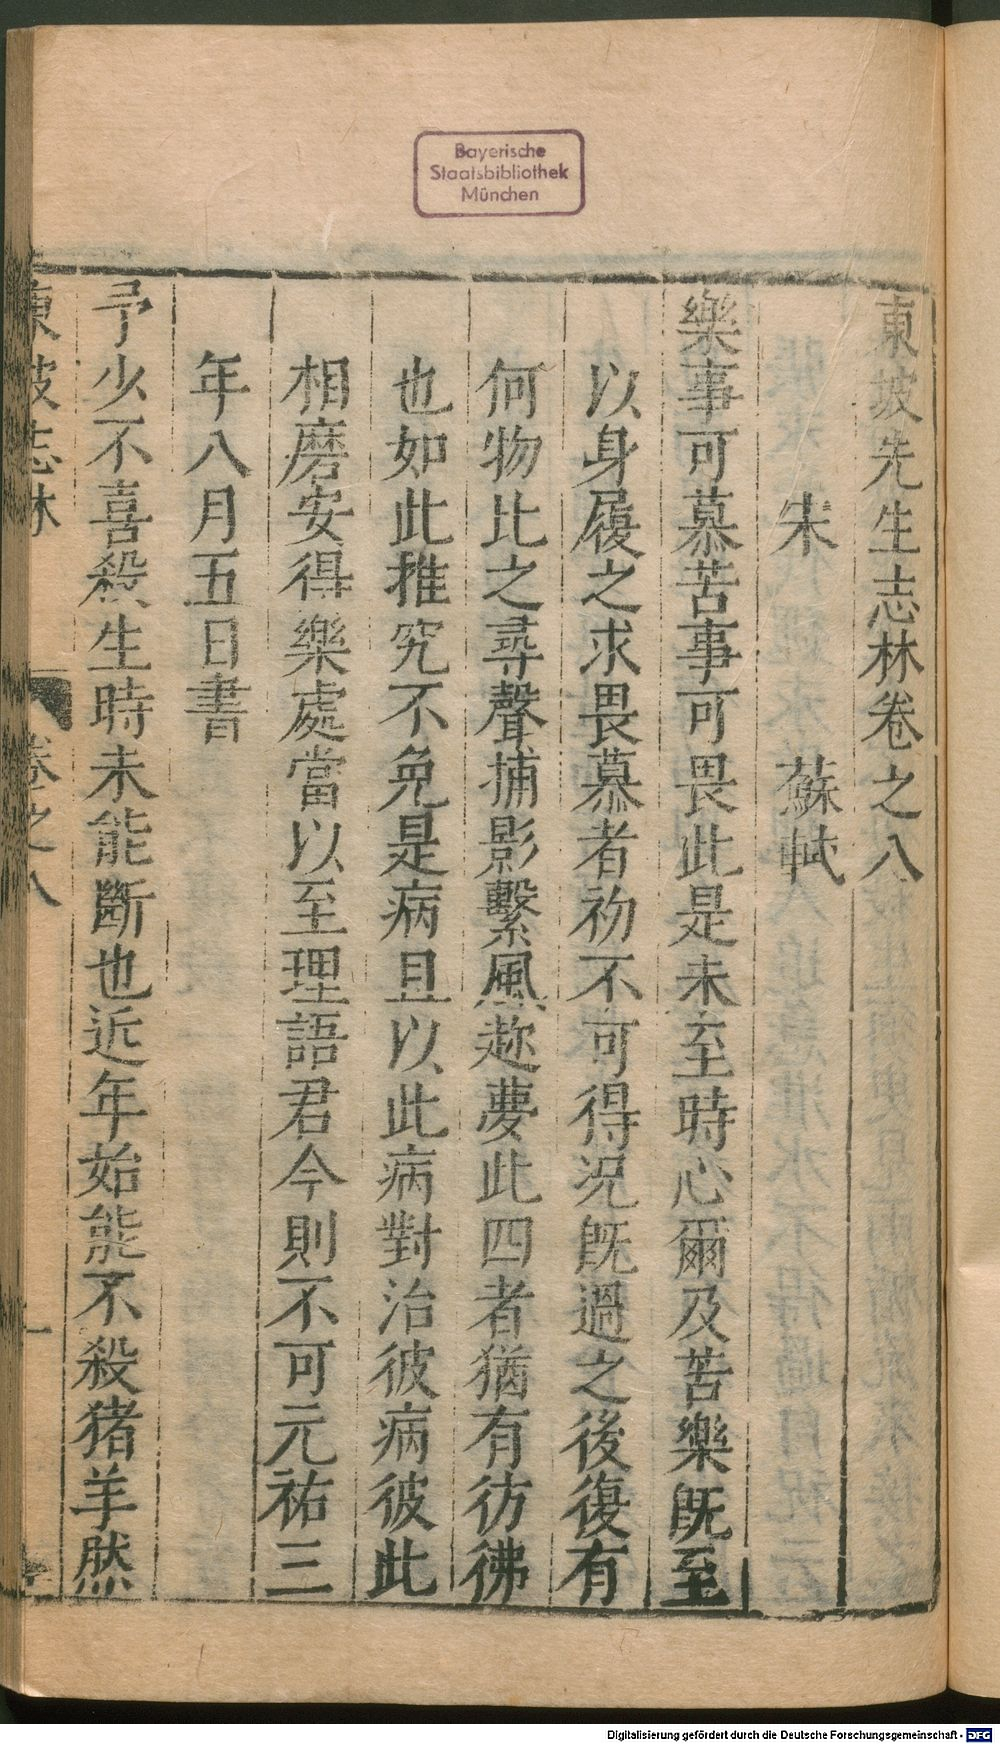 Bayerische
Staatsbibliothek
München
東坡先生志林卷之八
宋 蘇軾
樂事可慕苦事可畏此是未至時心爾及苦樂既至
以身履之求畏慕者初不可得況既過之後復有
何物比之尋聲捕影繫風趂夢此四者猶有彷彿
也如此推究不免是病且以此病對治彼病彼此
相磨安得樂處當以至理語君今則不可元祐三
年八月五日書
予少不喜殺生時未能斷也近年始能不殺猪羊然
東坡志林 卷之八 一
Digitalisierung gefördert durch die Deutsche Forschungsgemeinschaft - DFG